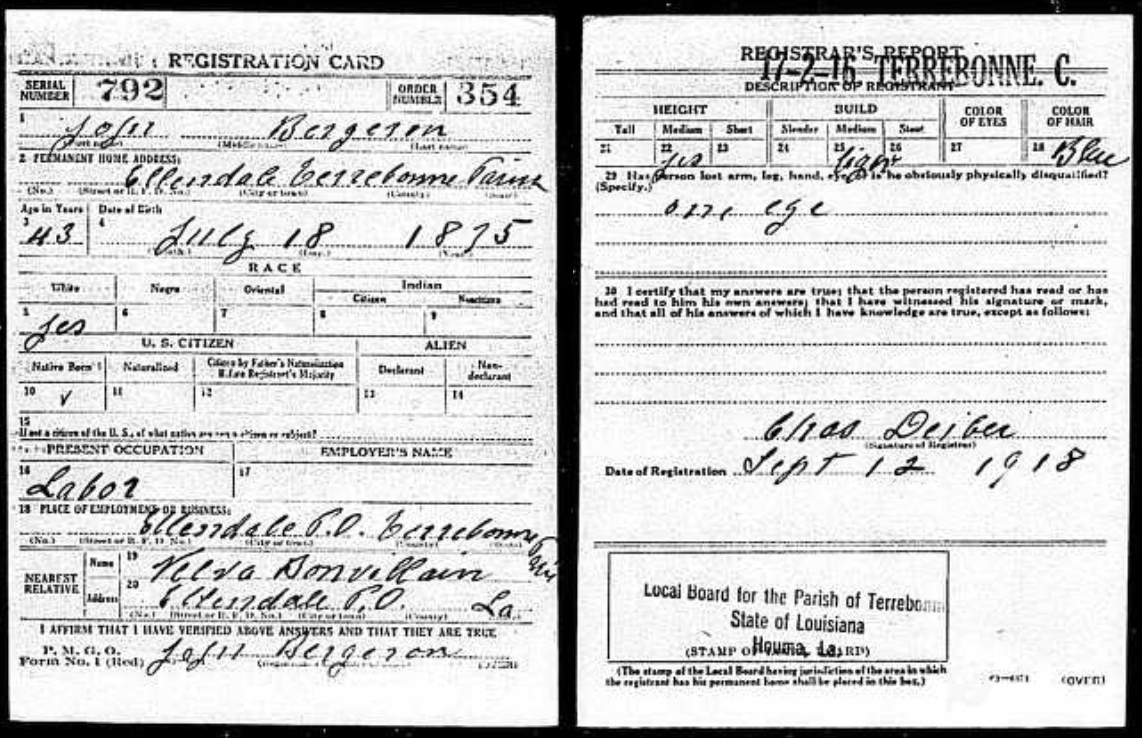 REGISTRATION CARD
SERIAL NUMBER 792
ORDER NUMBER 354
1 John Bergeron
(First name) (Middle name) (Last name)
2 PERMANENT HOME ADDRESS:
Ellendale Terrebonne Parish
(No.) (Street or R. F. D. No.) (City or town) (County) (State)
Age in Years Date of Birth
3 43 4 July 18 1875
(Month.) (Day.) (Year.)
RACE
White Negro Oriental Indian
Citizen Noncitizen
5 yes 6 7 8 9
U. S. CITIZEN ALIEN
Native Born Naturalized Citizen by Father's Naturalization Before Registrant's Majority Declarant Non-declarant
10 V 11 12 13 14
15
If not a citizen of the U. S., of what nation are you a citizen or subject?
PRESENT OCCUPATION EMPLOYER'S NAME
16 Labor 17
18 PLACE OF EMPLOYMENT OR BUSINESS:
Ellendale P.O. Terrebonne
(No.) (Street or R. F. D. No.) (City or town) (County) (State)
NEAREST RELATIVE
Name 19 Bonvillain
Address 20 Ellendale P.O. La
(No.) (Street or R. F. D. No.) (City or town) (County) (State)
I AFFIRM THAT I HAVE VERIFIED ABOVE ANSWERS AND THAT THEY ARE TRUE
P. M. G. O.
Form No. 1 (Red) John Bergeron
REGISTRAR'S REPORT
17-2-16. TERREBONNE. C.
DESCRIPTION OF REGISTRANT
HEIGHT BUILD COLOR OF EYES COLOR OF HAIR
Tall Medium Short Slender Medium Stout
21 22 yes 23 24 25 26 27 28 Blue
29 Has person lost arm, leg, hand, eye, is he obviously physically disqualified?
(Specify.)
one eye
30 I certify that my answers are true; that the person registered has read or has
had read to him his own answers; that I have witnessed his signature or mark,
and that all of his answers of which I have knowledge are true, except as follows:
Chas Deiber
(Signature of Registrar)
Date of Registration Sept 12 1918
Local Board for the Parish of Terrebonne
State of Louisiana
Houma, La.
(STAMP OF LOCAL BOARD)
(The stamp of the Local Board having jurisdiction of the area in which
the registrant has his permanent home shall be placed in this box.)
(OVER)